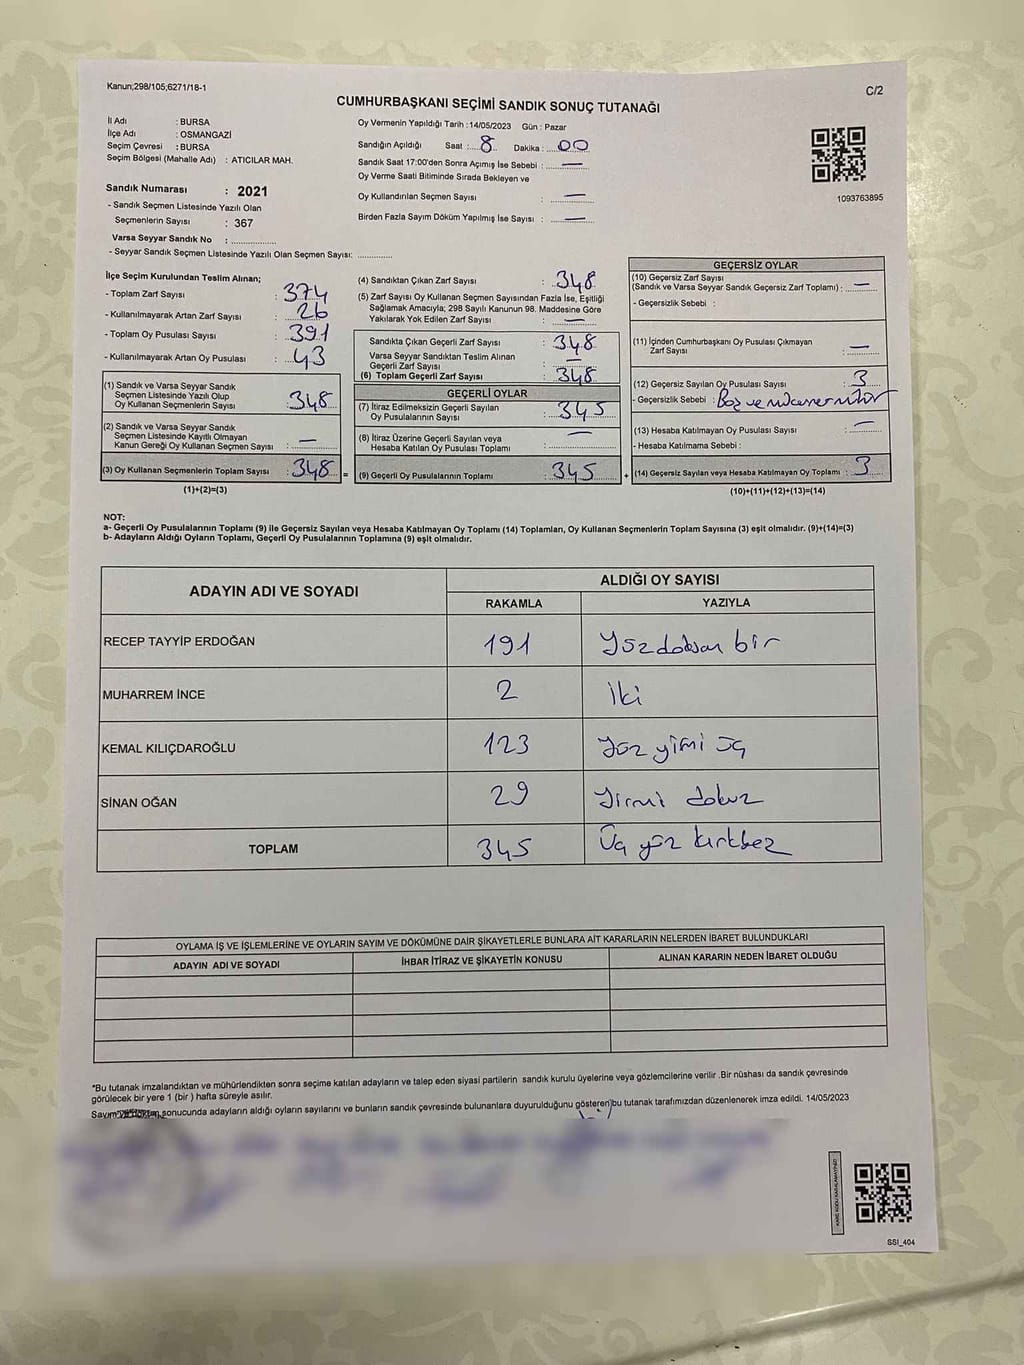 Kanun;298/105;6271/18-1
C/2
CUMHURBAŞKANI SEÇİMİ SANDIK SONUÇ TUTANAĞI
İl Adı : BURSA
İlçe Adı : OSMANGAZİ
Seçim Çevresi : BURSA
Seçim Bölgesi (Mahalle Adı) : ATICILAR MAH.
Sandık Numarası : 2021
- Sandık Seçmen Listesinde Yazılı Olan
Seçmenlerin Sayısı : 367
Varsa Seyyar Sandık No : ................
- Seyyar Sandık Seçmen Listesinde Yazılı Olan Seçmen Sayısı: .............
Oy Vermenin Yapıldığı Tarih :14/05/2023 Gün : Pazar
Sandığın Açıldığı Saat : 8 Dakika : 00
Sandık Saat 17:00'den Sonra Açımış İse Sebebi : —
Oy Verme Saati Bitiminde Sırada Bekleyen ve
Oy Kullandırılan Seçmen Sayısı : —
Birden Fazla Sayım Döküm Yapılmış İse Sayısı : —
1093763895
İlçe Seçim Kurulundan Teslim Alınan;
- Toplam Zarf Sayısı : 374
- Kullanılmayarak Artan Zarf Sayısı : 26
- Toplam Oy Pusulası Sayısı : 391
- Kullanılmayarak Artan Oy Pusulası : 43
(1) Sandık ve Varsa Seyyar Sandık
Seçmen Listesinde Yazılı Olup
Oy Kullanan Seçmenlerin Sayısı : 348
(2) Sandık ve Varsa Seyyar Sandık
Seçmen Listesinde Kayıtlı Olmayan
Kanun Gereği Oy Kullanan Seçmen Sayısı : —
(3) Oy Kullanan Seçmenlerin Toplam Sayısı : 348 =
(1)+(2)=(3)
(4) Sandıktan Çıkan Zarf Sayısı : 348
(5) Zarf Sayısı Oy Kullanan Seçmen Sayısından Fazla İse, Eşitliği
Sağlamak Amacıyla; 298 Sayılı Kanunun 98. Maddesine Göre
Yakılarak Yok Edilen Zarf Sayısı : —
Sandıkta Çıkan Geçerli Zarf Sayısı : 348
Varsa Seyyar Sandıktan Teslim Alınan
Geçerli Zarf Sayısı : —
(6) Toplam Geçerli Zarf Sayısı : 348
GEÇERLİ OYLAR
(7) İtiraz Edilmeksizin Geçerli Sayılan
Oy Pusulalarının Sayısı : 345
(8) İtiraz Üzerine Geçerli Sayılan veya
Hesaba Katılan Oy Pusulası Toplamı : —
(9) Geçerli Oy Pusulalarının Toplamı : 345 +
GEÇERSİZ OYLAR
(10) Geçersiz Zarf Sayısı
(Sandık ve Varsa Seyyar Sandık Geçersiz Zarf Toplamı) : —
- Geçersizlik Sebebi :
(11) İçinden Cumhurbaşkanı Oy Pusulası Çıkmayan
Zarf Sayısı : —
(12) Geçersiz Sayılan Oy Pusulası Sayısı : 3
- Geçersizlik Sebebi :
(13) Hesaba Katılmayan Oy Pusulası Sayısı : —
- Hesaba Katılmama Sebebi :
(14) Geçersiz Sayılan veya Hesaba Katılmayan Oy Toplamı : 3
(10)+(11)+(12)+(13)=(14)
NOT:
a- Geçerli Oy Pusulalarının Toplamı (9) ile Geçersiz Sayılan veya Hesaba Katılmayan Oy Toplamı (14) Toplamları, Oy Kullanan Seçmenlerin Toplam Sayısına (3) eşit olmalıdır. (9)+(14)=(3)
b- Adayların Aldığı Oyların Toplamı, Geçerli Oy Pusulalarının Toplamına (9) eşit olmalıdır.
ADAYIN ADI VE SOYADI
ALDIĞI OY SAYISI
RAKAMLA YAZIYLA
RECEP TAYYİP ERDOĞAN 191 Yüzdoksan bir
MUHARREM İNCE 2 iki
KEMAL KILIÇDAROĞLU 123 Yüz yimi üç
SİNAN OĞAN 29 Yirmi dokuz
TOPLAM 345 Üç yüz kırkbeş
OYLAMA İŞ VE İŞLEMLERİNE VE OYLARIN SAYIM VE DÖKÜMÜNE DAİR ŞİKAYETLERLE BUNLARA AİT KARARLARIN NELERDEN İBARET BULUNDUKLARI
ADAYIN ADI VE SOYADI İHBAR İTİRAZ VE ŞİKAYETİN KONUSU ALINAN KARARIN NEDEN İBARET OLDUĞU
*Bu tutanak imzalandıktan ve mühürlendikten sonra seçime katılan adayların ve talep eden siyasi partilerin sandık kurulu üyelerine veya gözlemcilerine verilir .Bir nüshası da sandık çevresinde
görülecek bir yere 1 (bir ) hafta süreyle asılır.
Sayım sonucunda adayların aldığı oyların sayılarını ve bunların sandık çevresinde bulunanlara duyurulduğunu gösteren bu tutanak tarafımızdan düzenlenerek imza edildi. 14/05/2023
KARE KODU KARALAMAYINIZ!
SSI_404